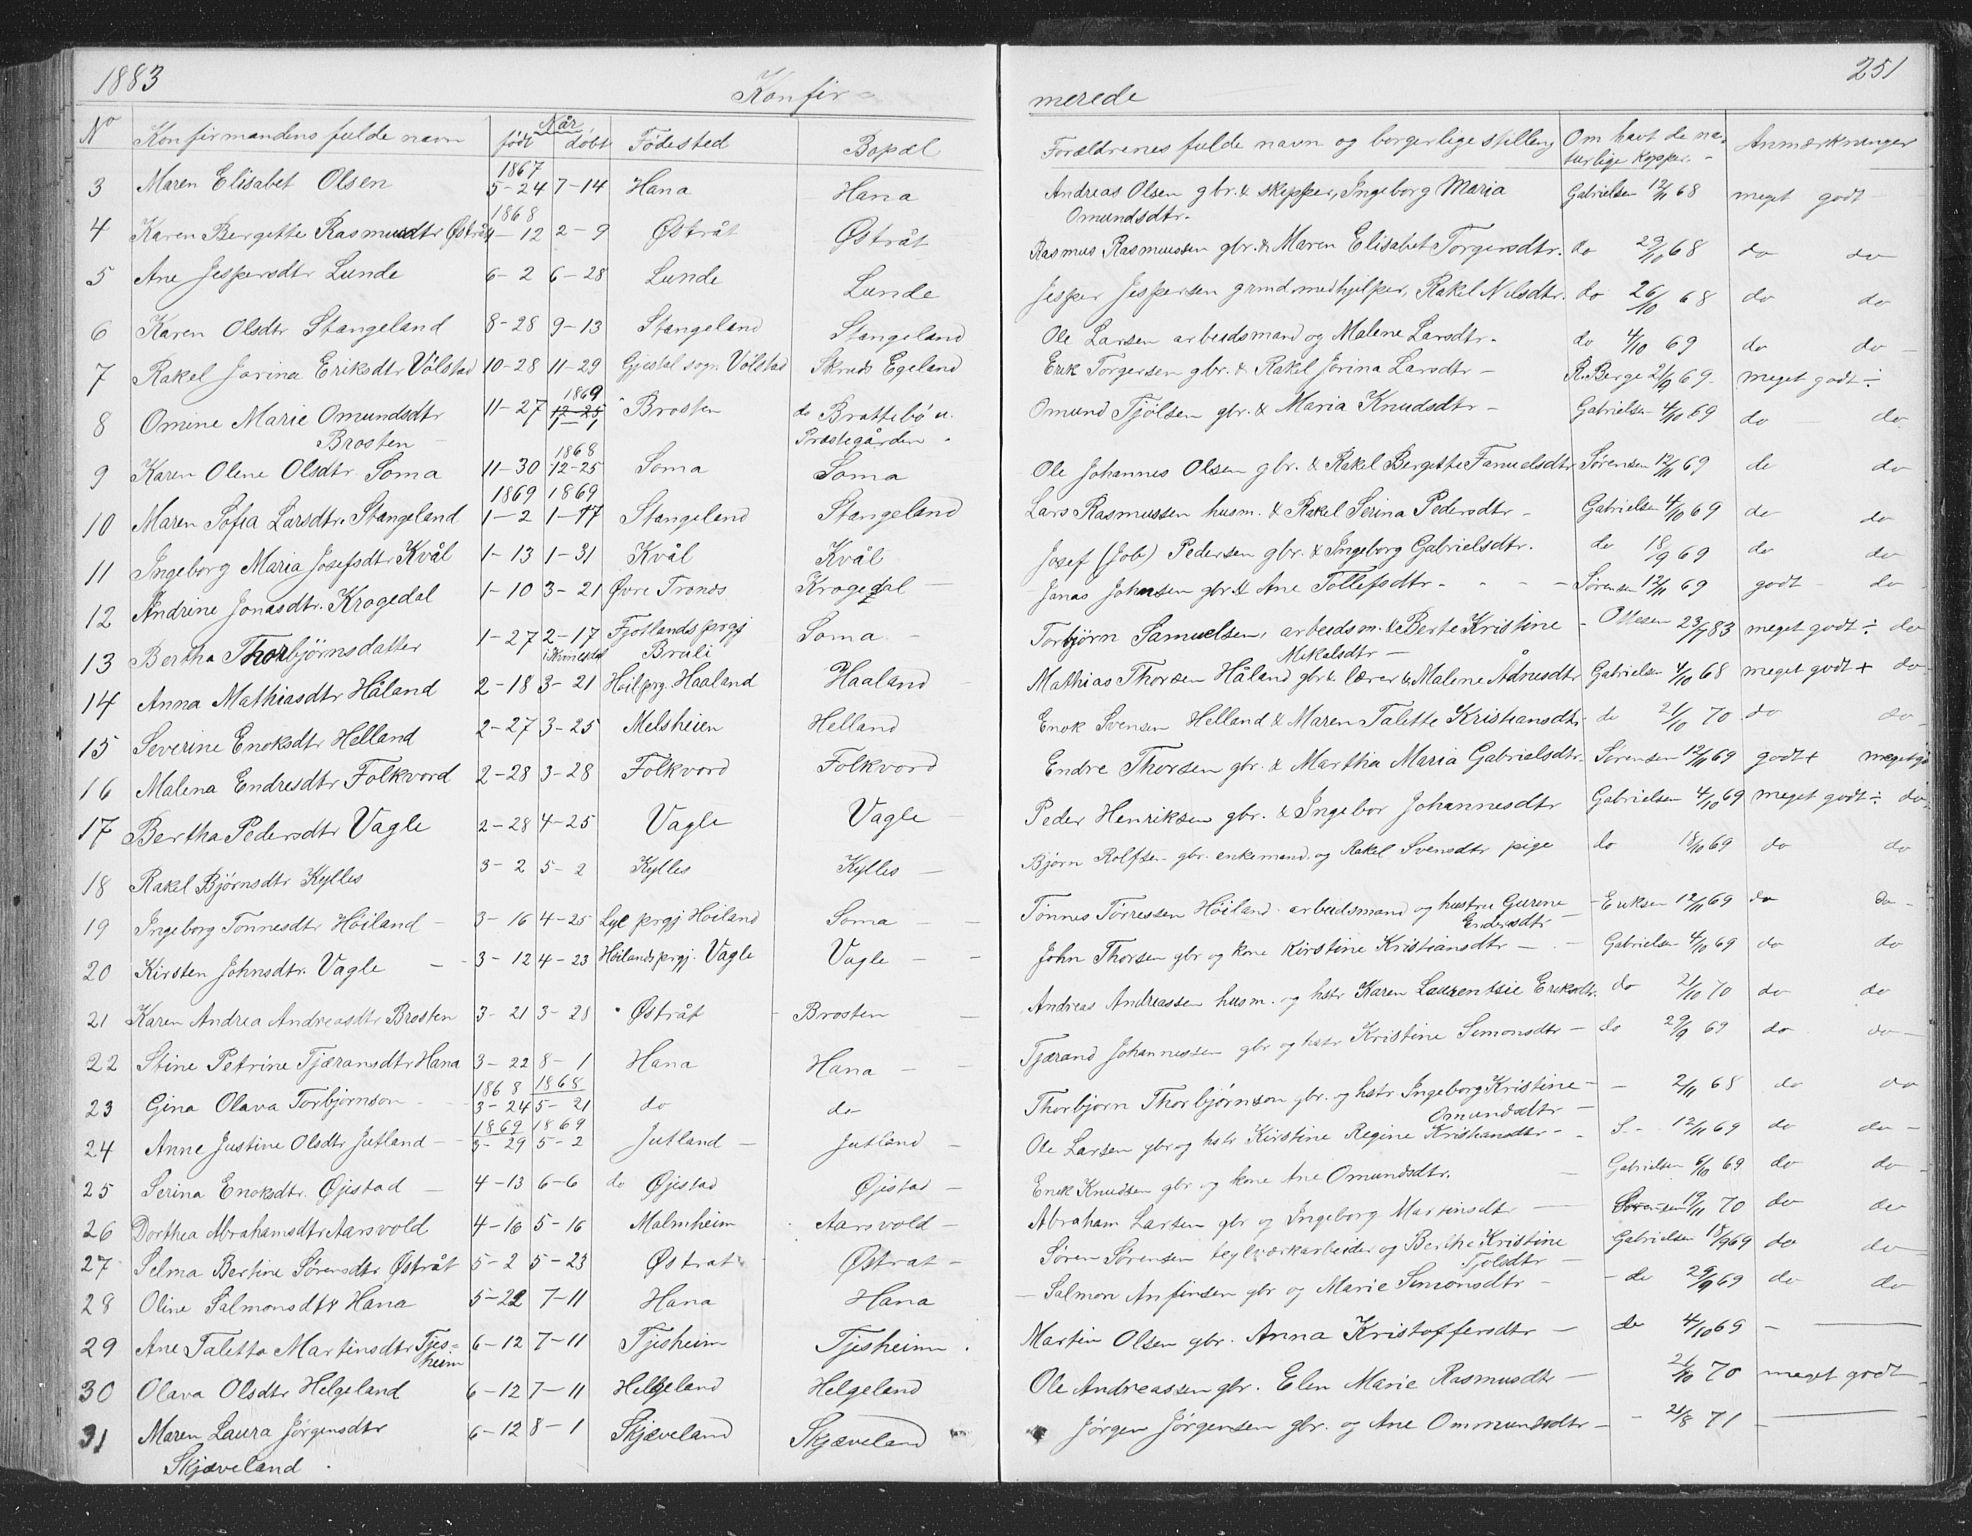 1883 Konfir-
merede 251
No Konfirmandens fulde navn Når født døbt Fødested Bopæl Forældrenes fulde navn og borgerlige stilling Om havt de na-
turlige kopper. Anmærkninger
1867
3 Maren Elisabet Olsen 5-24 7-14 Hana Hana Andreas Olsen gbr. & skipper, Ingeborg Maria Gabrielsen 12/11 68 meget godt
Omundsdtr.
1868
4 Karen Bergette Rasmusdtr Østråt 4-12 2-9 Østråt Østråt Rasmus Rasmussen gbr. & Maren Elisabet Torgersdtr. do 29/10 68 do do
5 Ane Jespersdtr Lunde 6-2 6-28 Lunde Lunde Jesper Jespersen grmd. medhjelper, Rakel Nilsdtr. do 26/10 68 do do
6 Karen Olsdtr Stangeland 8-28 9-13 Stangeland Stangeland Ole Larsen arbeidsmand og Malene Larsdtr. do 4/10 69 do do
7 Rakel Jorina Eriksdtr Vølstad 10-28 11-29 Gjestal sogn Vølstad Skruds Egeland Erik Torgersen gbr. & Rakel Jorina Larsdtr R. Berge 21/9 69. meget godt ÷
1869
8 Omine Marie Omundsdtr 11-27 12-25 Brosten do Brattebø u. Omund Tjølsen gbr. & Maria Knudsdtr Gabrielsen 4/10 69 do do
Brosten Præstegården
1868
9 Karen Olene Olsdtr Soma 11-30 12-25 Soma Soma Ole Johannes Olsen gbr. & Rakel Bergette Famuelsdtr Sørensen 12/11 69 do do
1869 1869
10 Maren Sofia Larsdtr. Stangeland 1-2 1-17 Stangeland Stangeland Lars Rasmussen husm. & Rakel Serina Pedersdtr Gabrielsen 4/10 69 do do
11 Ingeborg Maria Josefsdtr Kvål 1-13 1-31 Kvål Kvål Josef (Job) Pedersen gbr. & Ingeborg Gabrielsdtr. do 18/9 69 do do
12 Andrine Jonasdtr. Krogedal 1-10 3-21 Øvre Tronds Krogedal Jonas Johnsen gbr & Ane Tollefsdtr Sørensen 12/11 69 godt do
13 Bertha Thorbjørnsdatter 1-27 2-17 Fjotlands prgj Soma Torbjørn Samuelsen, arbeidsm. & Berte Kristine Ottesen 23/7 83 meget godt ÷ do
Bruli Mikalsdtr
14 Anna Mathiasdtr Håland 2-18 3-21 Høil. prg. Haaland Haaland Mathias Thorsen Håland gbr & lærer & Malene Ådnesdtr Gabrielsen 4/10 68 meget godt + do
15 Severine Enoksdtr Helland 2-27 3-25 Melsheien Helland Enok Svensen Helland & Maren Talette Kristiansdtr do 21/10 70 do do
16 Malena Endresdtr Folkvord 2-28 3-28 Folkvord Folkvord Endre Thorsen gbr. & Martha Maria Gabrielsdtr. Sørensen 12/11 69 godt +
17 Bertha Pedersdtr Vagle 2-28 4-25 Vagle Vagle Peder Henriksen gbr. & Ingebor Johannesdtr Gabrielsen 4/10 69 meget godt ÷ do
18 Rakel Bjørnsdtr Kylles 3-2 5-2 Kylles Kylles Bjørn Rolfsen gbr. enkemand og Rakel Svensdtr pige do 18/10 69 do do
19 Ingeborg Tønnesdtr Høiland 3-16 4-25 Lye prgj Høiland Soma Tønnes Tørressen Høiland arbeidsmand og hustru Gurine Eriksen 12/11 69 do do
Endresdtr
20 Kirsten Johnsdtr. Vagle 3-12 4-23 Høilands prgj. Vagle Vagle John Thorsen gbr og kone Kirstine Kristiansdtr Gabrielsen 4/10 69 do do
21 Karen Andrea Andreasdtr Brosten 3-21 3-28 Østråt Brosten Andreas Andreassen husm. og hstr Karen Laurentsie Eriksdtr. do 21/10 70 do do
22 Stine Petrine Tjæransdtr Hana 3-22 8-1 Hana Hana Tjærand Johannessen gbr og hstr Kristine Simonsdtr do 29/9 69 do do
1868 1868
23 Gina Olava Torbjørnson 3-24 5-21 do do Thorbjorn Thorbjørnson gbr. og hstr Ingeborg Kristine 2/11 68 do do
Omundsdtr
1869 1869
24 Anne Justine Olsdtr Jutland 3-29 5-2 Jutland Jutland Ole Larsen gbr og hstr Kirstine Regine Kristiansdtr S. 12/11 69 do do
25 Serina Enoksdtr. Øjestad 4-13 6-6 do Øjestad Øjestad Enok Knudsen gbr og kone Ane Omundsdtr. Gabrielsen 6/10 69 do do
26 Dorthea Abrahamsdtr Aarsvold 4-16 5-16 Malmheim Aarsvold Abraham Larsen gbr og Ingeborg Martinsdtr Sørensen 19/11 70 do do
27 Selma Bertine Sørensdtr Østråt 5-2 5-23 Østrat Østrat Søren Sørensen teglværkarbeider og Berthe Kristine Gabrielsen 18/9 69 do do
Tjølsdtr
28 Oline Salmonsdtr Hana 5-22 7-11 Hana Hana Salmon Anfinsen gbr og Marie Simonsdtr do 29/9 69 do do
29 Ane Taletta Martinsdtr Tjes- 6-12 7-11 Tjesheim Tjesheim Martin Olsen gbr. Anna Kristoffersdtr do 4/10 69
heim
30 Olava Olsdtr Helgeland 6-12 7-11 Helgeland Helgeland Ole Andreassen gbr. Elen Marie Rasmusdtr 21/10 70 meget godt
31 Maren Laura Jørgensdtr 6-12 8-1 Skjæveland Skjæveland Jørgen Jørgensen gbr. og Ane Ommundsdtr 21/8 71
Skjæveland